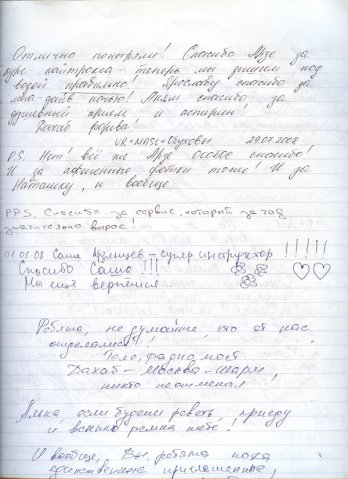 Отлично поныряли! Спасибо Арзе за
курс найтрокса – теперь мы дышим под
водой правильно! Ярославу спасибо за
два дайва ночью! Аням спасибо за
душевный приём и аспирин.
Дахаб форева!
VR+MASI+Обуховы 29.07.2008
P.S. Нет! всё же Арзе особое спасибо!
И за афигенные фотки тоже! И за
Наташку, и вообще
P.P.S. Спасибо за сервис, который за год
значительно вырос!
01.08.08 Саша – супер инструктор !!!!!
Спасибо Саша !!!
Мы ещё вернёмся
Ребята, не думайте, что от нас
отделались!!!
Тело, фарио, мост
Дахаб – Москва – Шарм,
никто не отменял!
Алька, если будешь реветь, приеду
и всыплю ремня тебе!
И вообще, Вы, ребята, пока
единственные